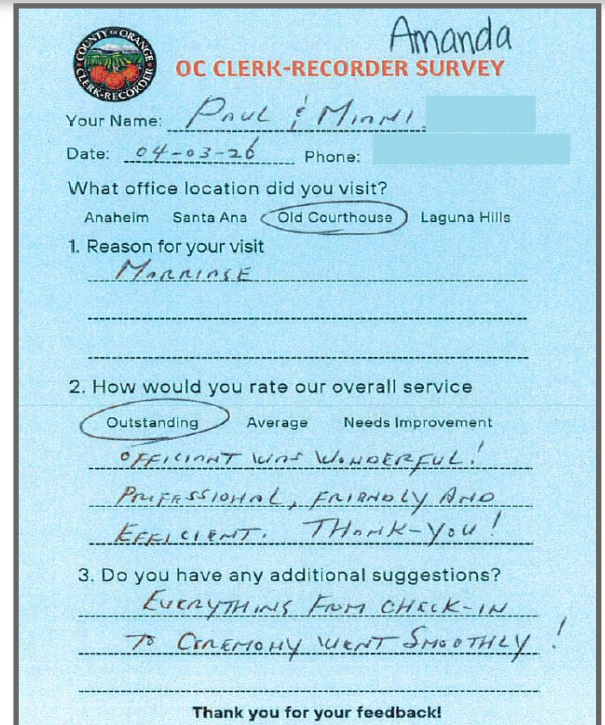 Amanda
COUNTY OF ORANGE
CLERK-RECORDER
OC CLERK-RECORDER SURVEY
Your Name: PAUL & MIANI
Date: 04-03-26 Phone:
What office location did you visit?
Anaheim Santa Ana Old Courthouse Laguna Hills
1. Reason for your visit
MARRIAGE
2. How would you rate our overall service
Outstanding Average Needs Improvement
OFFICIANT WAS WONDERFUL!
PROFESSIONAL, FRIENDLY AND
EFFICIENT. THANK-YOU!
3. Do you have any additional suggestions?
EVERYTHING FROM CHECK-IN
TO CEREMONY WENT SMOOTHLY!
Thank you for your feedback!